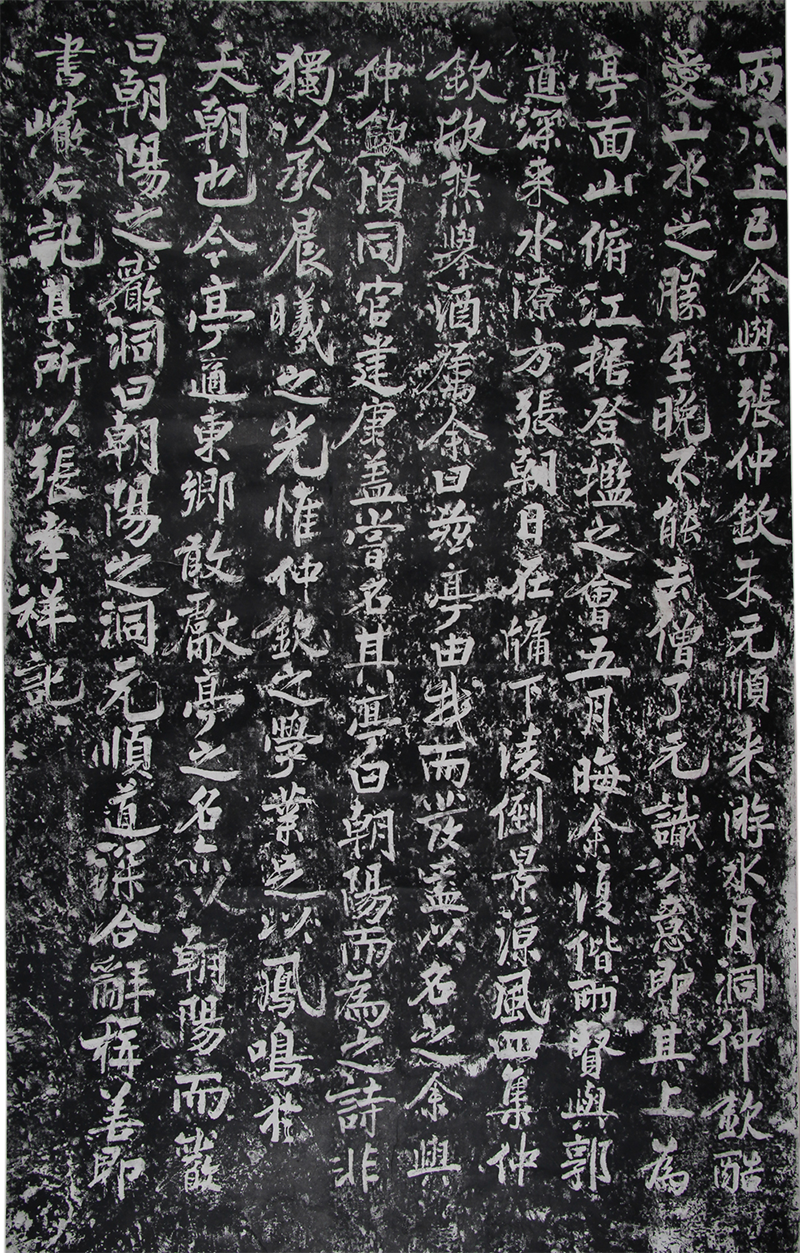 丙戌上巳余與張仲欽朱元順来游水月洞仲欽酷
愛山水之勝至晚不能去僧了元識公意即其上為
亭面山俯江據登攬之會五月晦余復偕兩賢與郭
道深来水潦方張朝日在牖下凌倒景凉風四集仲
欽欣然舉酒屬余曰兹亭由我而發盍以名之余與
仲欽頃同官建康蓋嘗名其亭曰朝陽而為之詩非
獨以承晨曦之光惟仲欽之學業足以鳳鳴於
天朝也今亭適東鄉敢獻亭之名亦以朝陽而巖
曰朝陽之巖洞曰朝陽之洞元順道深合辭稱善即
書巖石記其所以張孝祥記